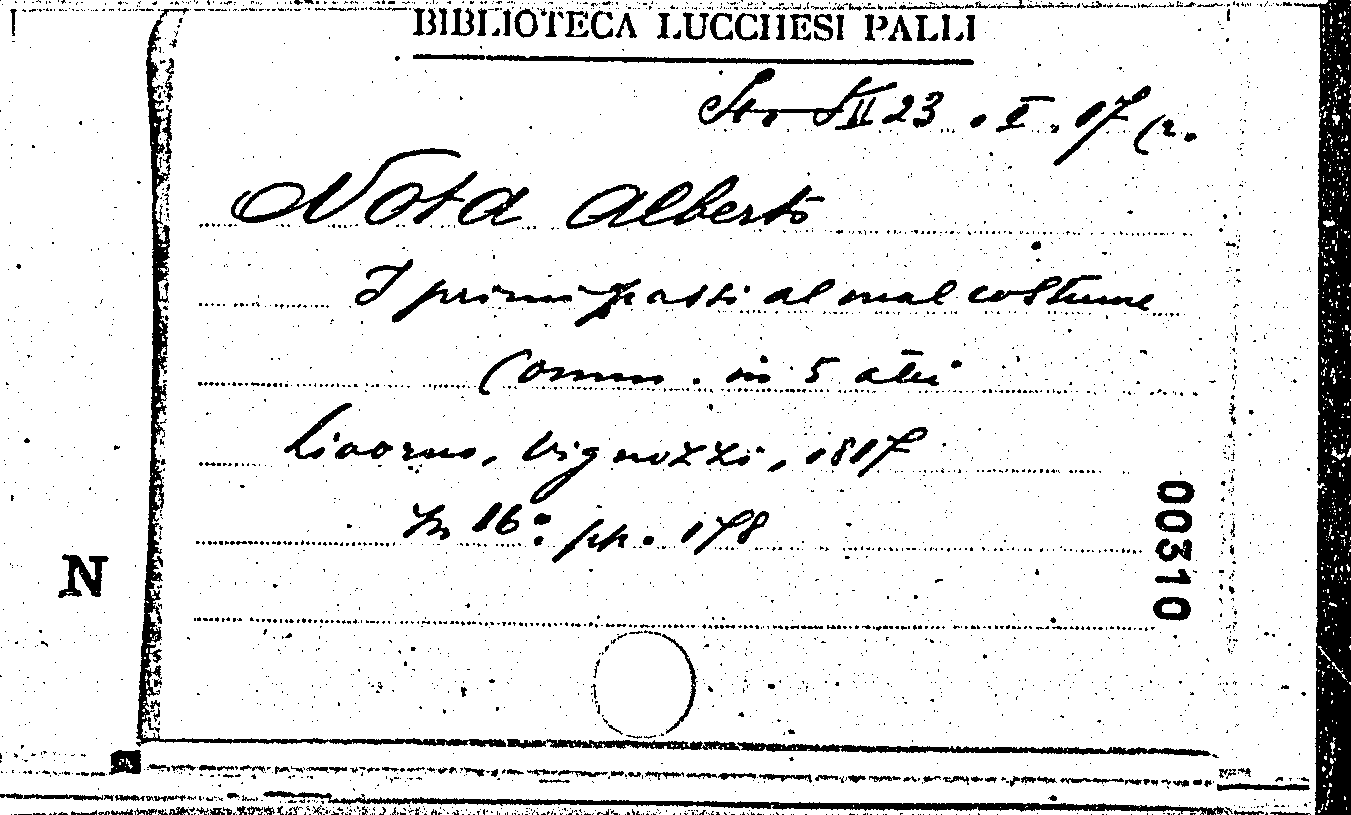 BIBLIOTECA LUCCHESI PALLI
II 23 . I . 17 (2.
Nota Alberto
I primi passi al mal costume
Comm. in 5 atti
Livorno, Vignozzi, 1817
In 16º pp. 178
00310
N